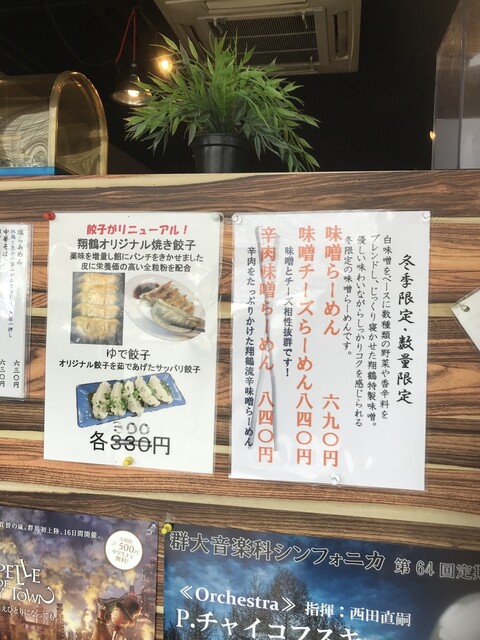 餃子がリニューアル！
翔鶴オリジナル焼き餃子
薬味を増量し餡にパンチをきかせました
皮に栄養価の高い全粒粉を配合
ゆで餃子
オリジナル餃子を茹であげたサッパリ餃子
300
各330円
冬季限定・数量限定
白味噌をベースに数種類の野菜や香辛料を
ブレンドし、じっくり寝かせた翔鶴特製味噌。
優しい味わいながらしっかりコクを感じられる
冬限定の味噌らーめんです。
味噌らーめん 六九〇円
味噌チーズらーめん八四〇円
味噌とチーズ相性抜群です！
辛肉味噌らーめん 八四〇円
辛肉をたっぷりかけた翔鶴流辛味噌らーめん。
塩らあめん
六三〇円
中華そば
六三〇円
群馬初上陸、16日間開催。
500円
TOWN
群大音楽科シンフォニカ 第64回定期
≪Orchestra≫ 指揮：西田直嗣
P.チャイコフスキ